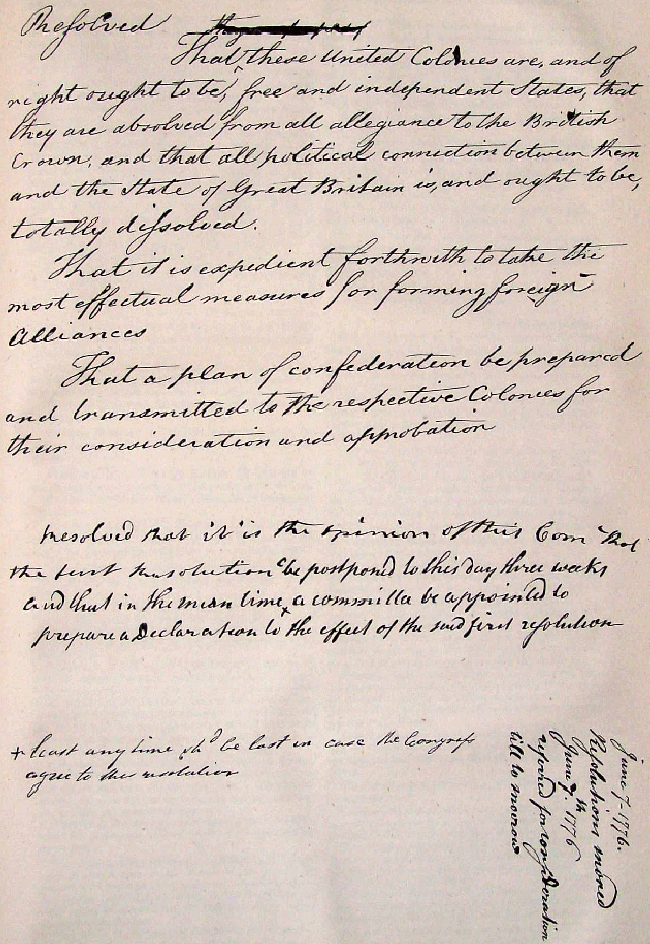 Resolved
That these United Colonies are, and of
right ought to be, free and independent States, that
they are absolved from all allegiance to the British
Crown, and that all political connection between them
and the State of Great Britain is, and ought to be,
totally dissolved.
That it is expedient forthwith to take the
most effectual measures for forming foreign
Alliances
That a plan of confederation be prepared
and transmitted to the respective Colonies for
their consideration and approbation
Resolved that it is the opinion of this Com that
the first Resolution be postponed to this day three weeks
and that in the mean time + a committee be appointed to
prepare a Declaration to the effect of the said first resolution
+ least any time shd be lost in case the Congress
agree to this resolution
June 7-1776.
Resolutions moved
June 7th. 1776
referred for consideration
till to morrow